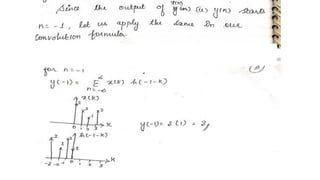 Since the output of y(n) (ie) y(n) starts
n = -1, let us apply the same In our
Convolution formula.
for n=-1
y(-1) = Σ x(k) h(-1-k)
n=-∞
x(k)
0 1 2 3 k
y(-1) = 2(1) = 2,
h(-1-k)
-2 -1 0 1 2 3 k